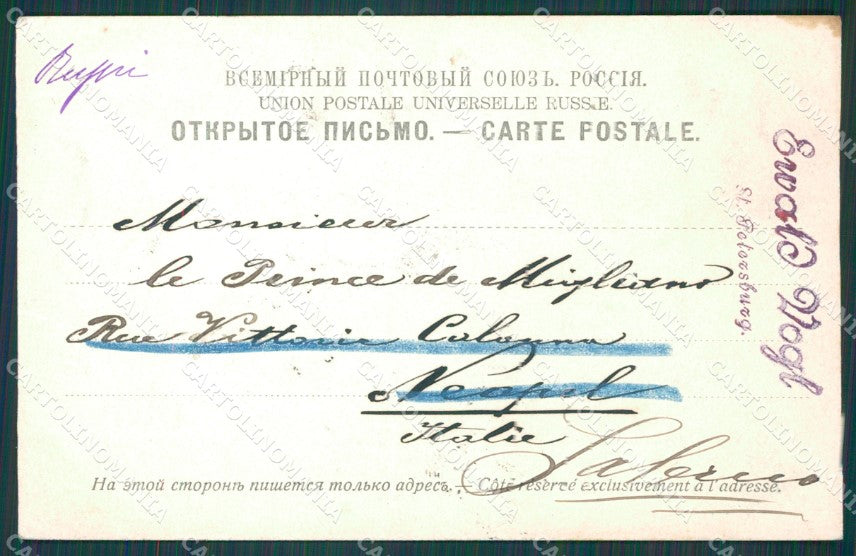 ВСЕМІРНЫЙ ПОЧТОВЫЙ СОЮЗЪ. РОССІЯ.
UNION POSTALE UNIVERSELLE RUSSIE
ОТКРЫТОЕ ПИСЬМО. — CARTE POSTALE.
Monsieur
le Prince de Migliano
Rue Vittoria Colonna
Neapel
Italie
Salerno
На этой сторонѣ пишется только адресъ. — Côté réservé exclusivement à l'adresse.
Ewald Vogl
St. Petersburg.
CARTOLINOMANIA